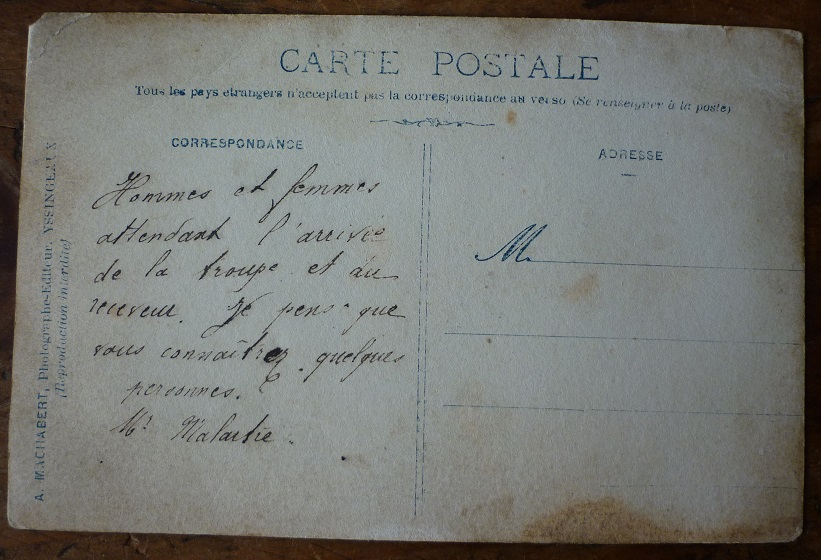 CARTE POSTALE
Tous les pays etrangers n'acceptent pas la correspondance au verso (Se renseigner à la poste)
CORRESPONDANCE
Hommes et femmes
attendant l'arrivée
de la troupe et du
receveur. Je pense que
vous connaîtrez quelques
personnes.
Mr Malartie.
ADRESSE
M
A. MACHABERT, Photographe-Editeur, YSSINGEAUX
(Reproduction interdite)